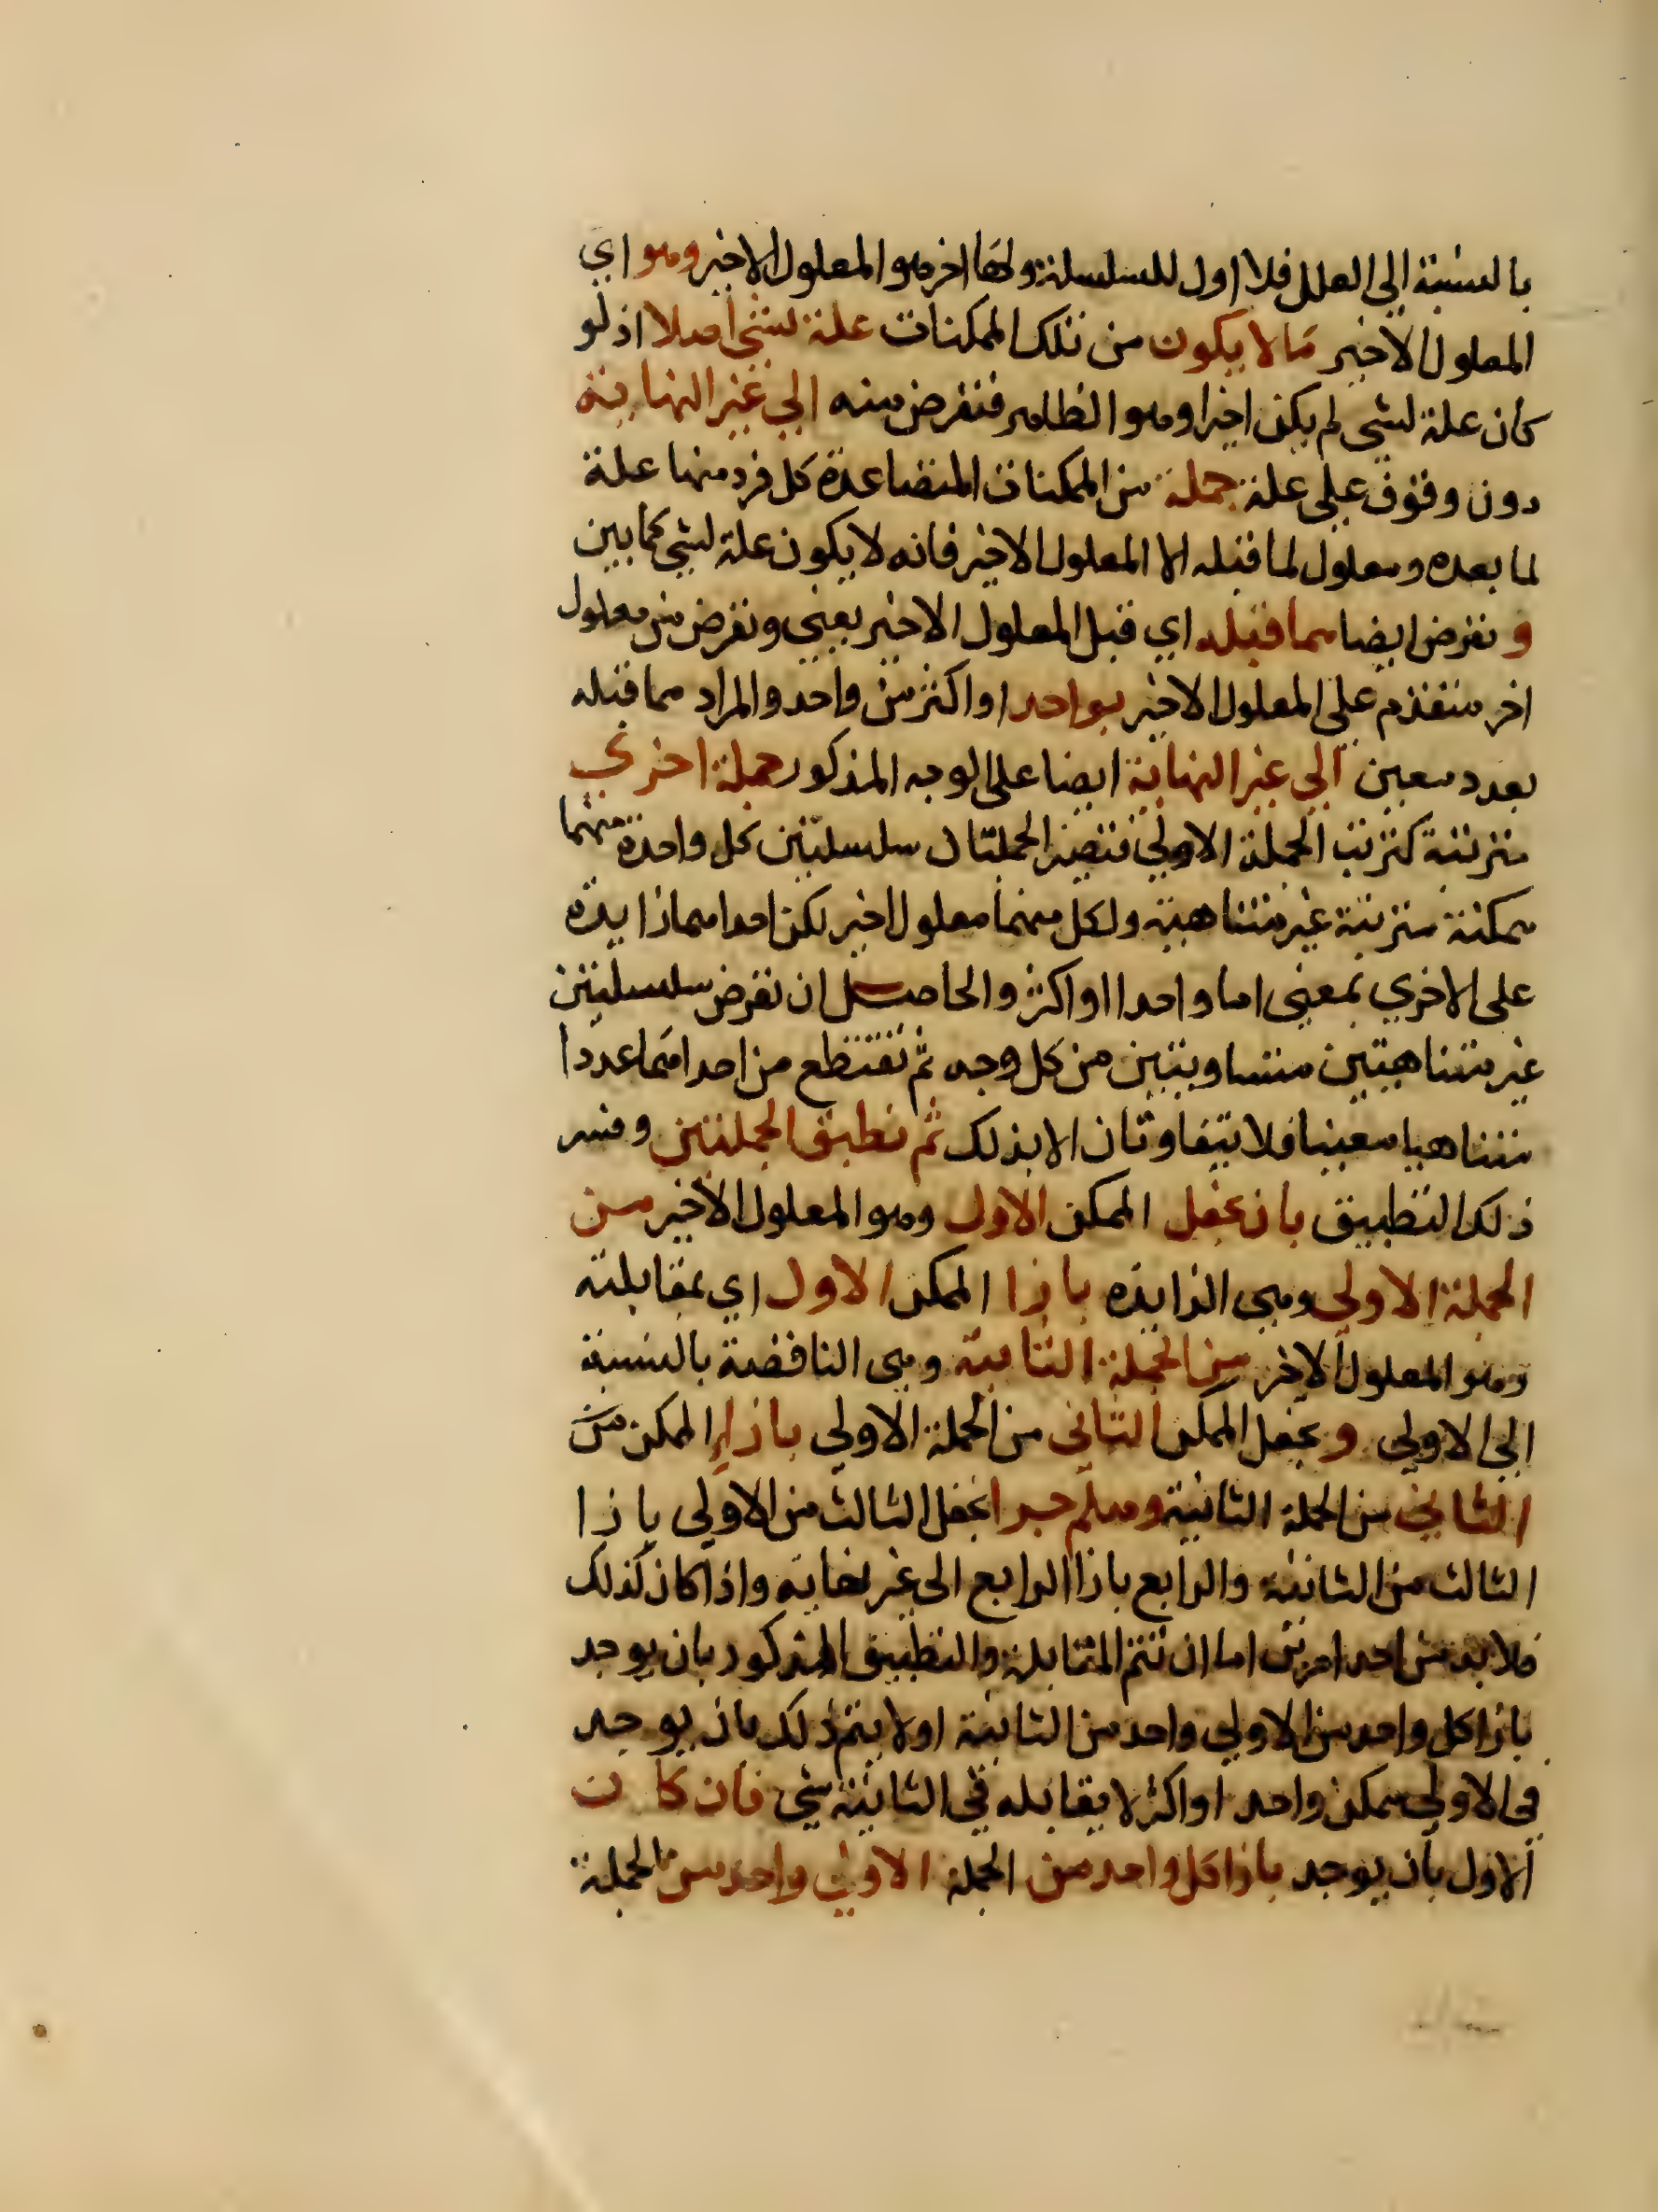 بالنسبة الي العلل فلا اول للسلسلة ولها اخر هو المعلول الاخير وهو اي
المعلول الاخير ما لا يكون من تلك الممكنات علة لشي اصلا اذ لو
كان علة لشي لم يكن اخيرا وهو الظاهر فنفرض منه الي غير النهاية
دون وقوف علي علة جملة من الممكنات المتصاعدة كل فرد منها علة
لما بعده ومعلول لما قبله الا المعلول الاخير فانه لا يكون علة لشي كما بين
و نفرض ايضا مما قبله اي قبل المعلول الاخير يعني ونفرض من معلول
اخر متقدم علي المعلول الاخير بواحد او اكثر من واحد والمراد مما قبله
بعدد معين الي غير النهاية ايضا علي الوجه المذكور جملة اخري
مترتبة كترتب الجملة الاولي فتصير الجملتان سلسلتين كل واحدة منهما
ممكنة مترتبة غير متناهية ولكل منهما معلول اخير لكن احداهما زايدة
علي الاخري بمعني اما واحدا او اكثر والحاصل ان نفرض سلسلتين
غير متناهيتين متساويتين من كل وجه ثم نقتطع من احداهما عددا
متناهيا معينا فلا يتفاوتان الا بذلك ثم نطبق الجملتين وفسر
ذلك التطبيق بان نجعل الممكن الاول وهو المعلول الاخير من
الجملة الاولي وهي الزايدة بازا الممكن الاول اي بمقابلته
وهو المعلول الاخر من الجملة الثانية وهي الناقصة بالنسبة
الي الاولي و نجعل الممكن الثاني من الجملة الاولي بازاء الممكن من
الثاني من الجملة الثانية وهلم جرا نجعل الثالث من الاولي بازا
الثالث من الثانية والرابع بازا الرابع الي غير نهاية واذا كان كذلك
فلا بد من احد امرين اما ان تتم المقابلة والتطبيق المذكور بان يوجد
بازا كل واحد من الاولي واحد من الثانية او لا يتم ذلك بان يوجد
في الاولي ممكن واحد او اكثر لا يقابله في الثانية شي فان كان
الاول بان يوجد بازا كل واحد من الجملة الاولي واحد من الجملة